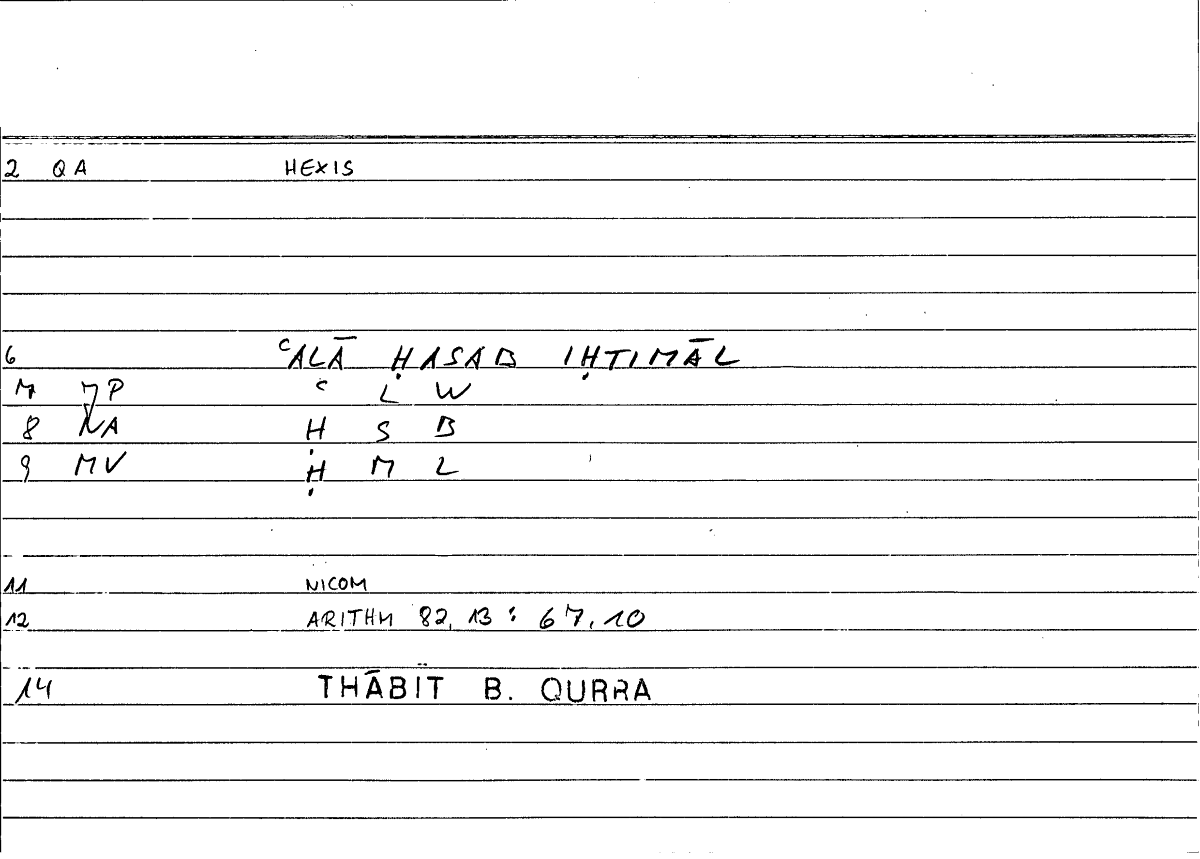 2 QA HEXIS
6 ʿALĀ ḤASAB IḤTIMĀL
7 7P ʿ L W
8 NA Ḥ S B
9 MV Ḥ M L
11 NICOM
12 ARITHM 82,13 : 67,10
14 THĀBIT B. QURRA